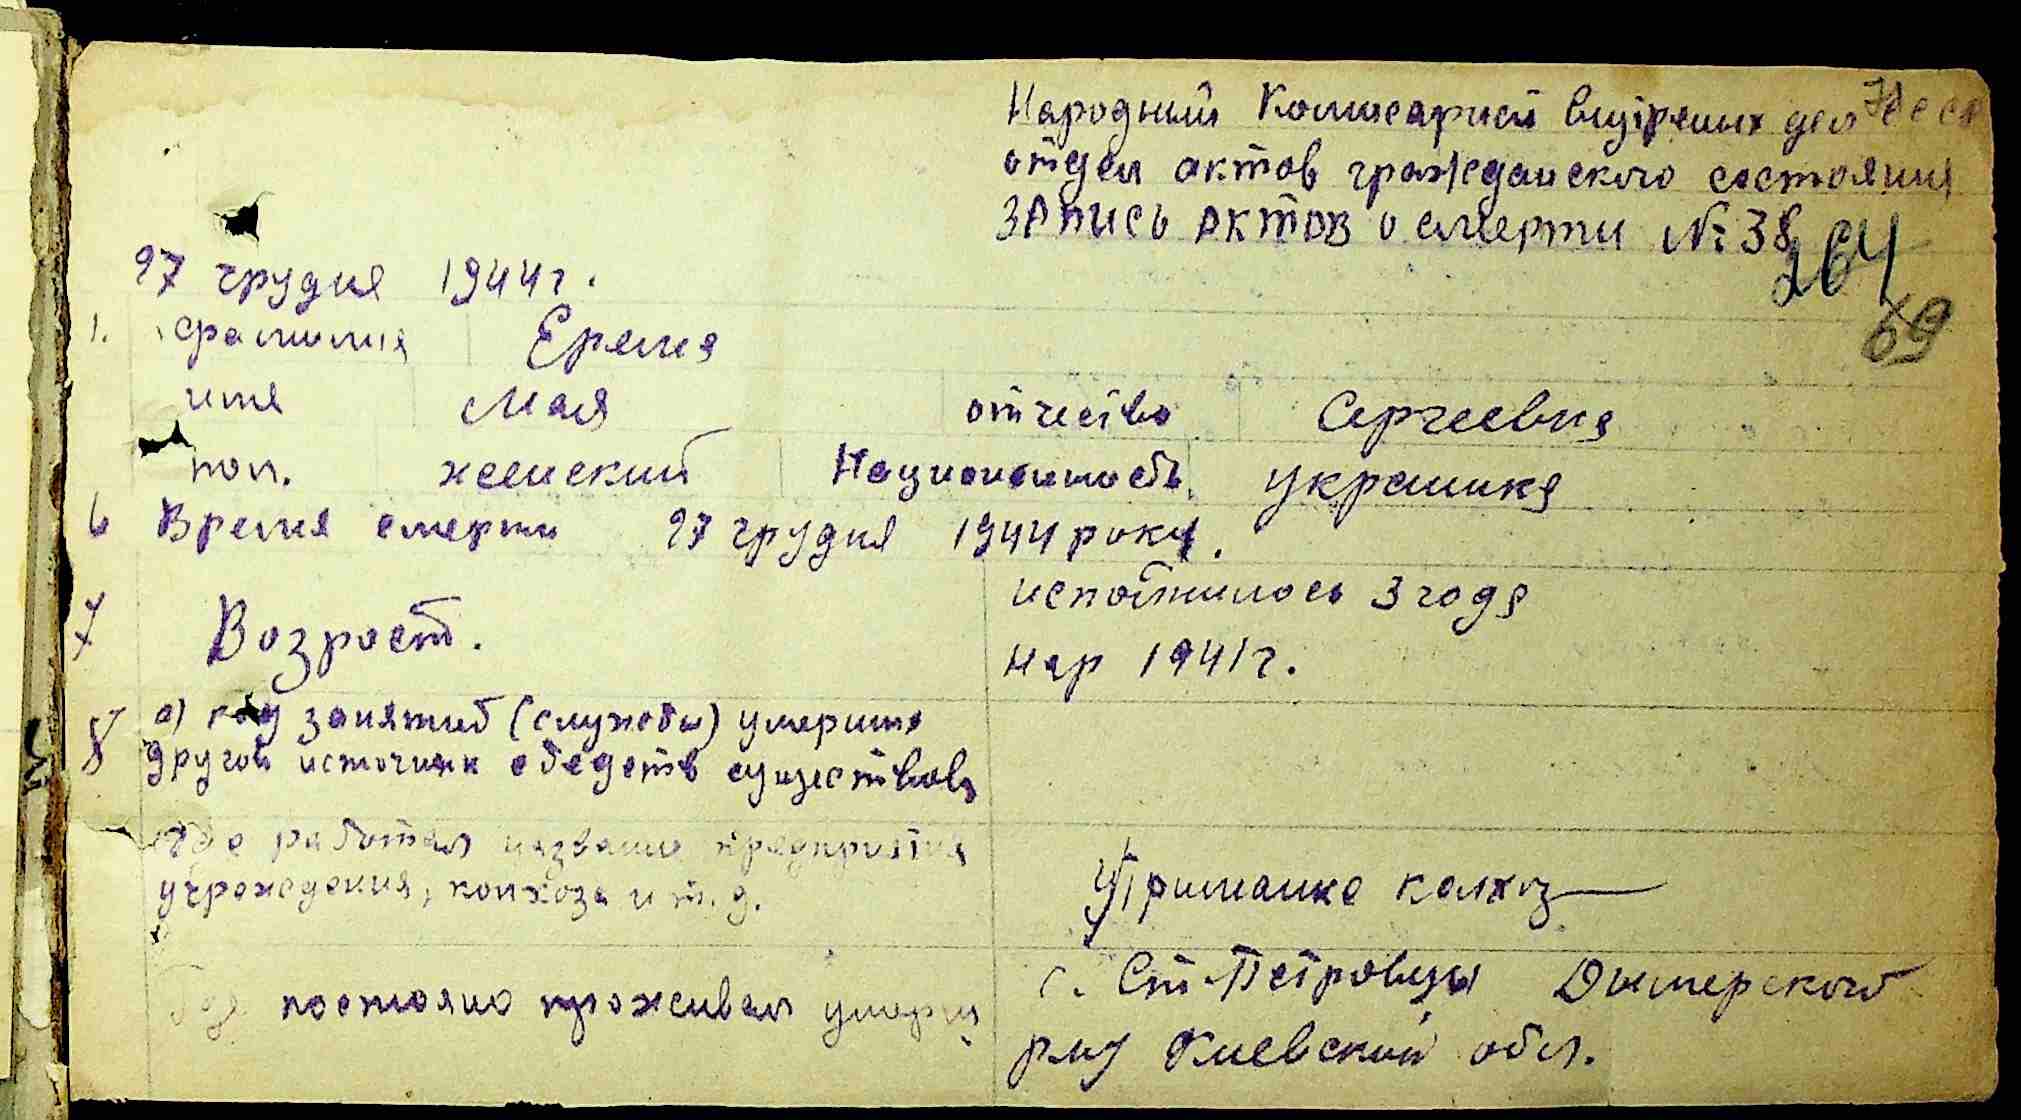 Народний Комисариєй Внутрених дел УССР
отдел актов гражданского состояния
ЗАПИСЬ АКТОВ о смерти № 38
264
69
27 грудня 1944 г.
1. фамилия Ерема
имя Мая отчество Сергеевна
пол. женский Национальность украинка
6 Время смерти 27 грудня 1944 року.
7 Возраст. исполнилось 3 года
нар 1941 г.
8 а) род занятий (службы) умерших
другой источник средств существова
где работал название предприятия
учреждения, колхоза и т.д. Утриманка колхоз
Где постояно проживал умерш с. Ст-Петровцы Дымерского
р-ну Киевский обл.